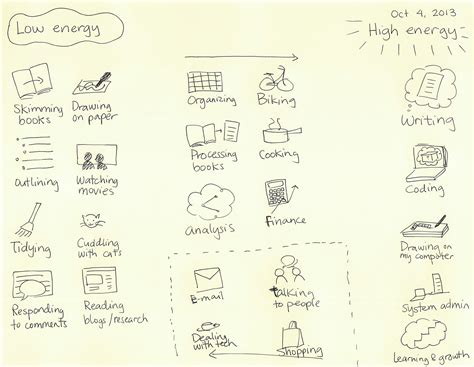 Oct 4, 2013
Low energy
High energy
Skimming
books
Drawing
on paper
Organizing
Biking
Writing
Outlining
Watching
movies
Processing
books
Cooking
Coding
Tidying
Cuddling
with cats
Analysis
Finance
Drawing on
my computer
Responding
to comments
Reading
blogs/research
E-mail
Talking
to people
System admin
Dealing
with tech
Shopping
Learning & growth